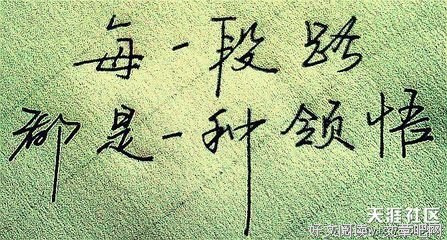 每一段路
都是一种领悟
天涯社区